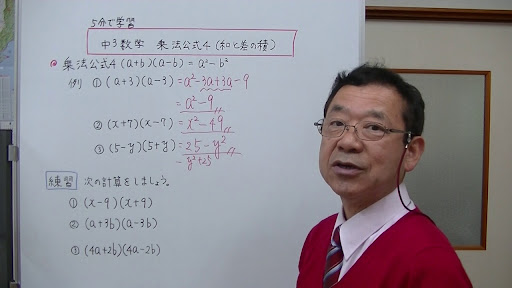 5分で学習
中3数学 乗法公式4 (和と差の積)
◎ 乗法公式4 (a+b)(a-b) = a²-b²
例 ① (a+3)(a-3) = a²-3a+3a-9
= a²-9
② (x+7)(x-7) = x²-49
③ (5-y)(5+y) = 25-y²
-y²+25
練習 次の計算をしましょう。
① (x-9)(x+9)
② (a+3b)(a-3b)
③ (4a+2b)(4a-2b)